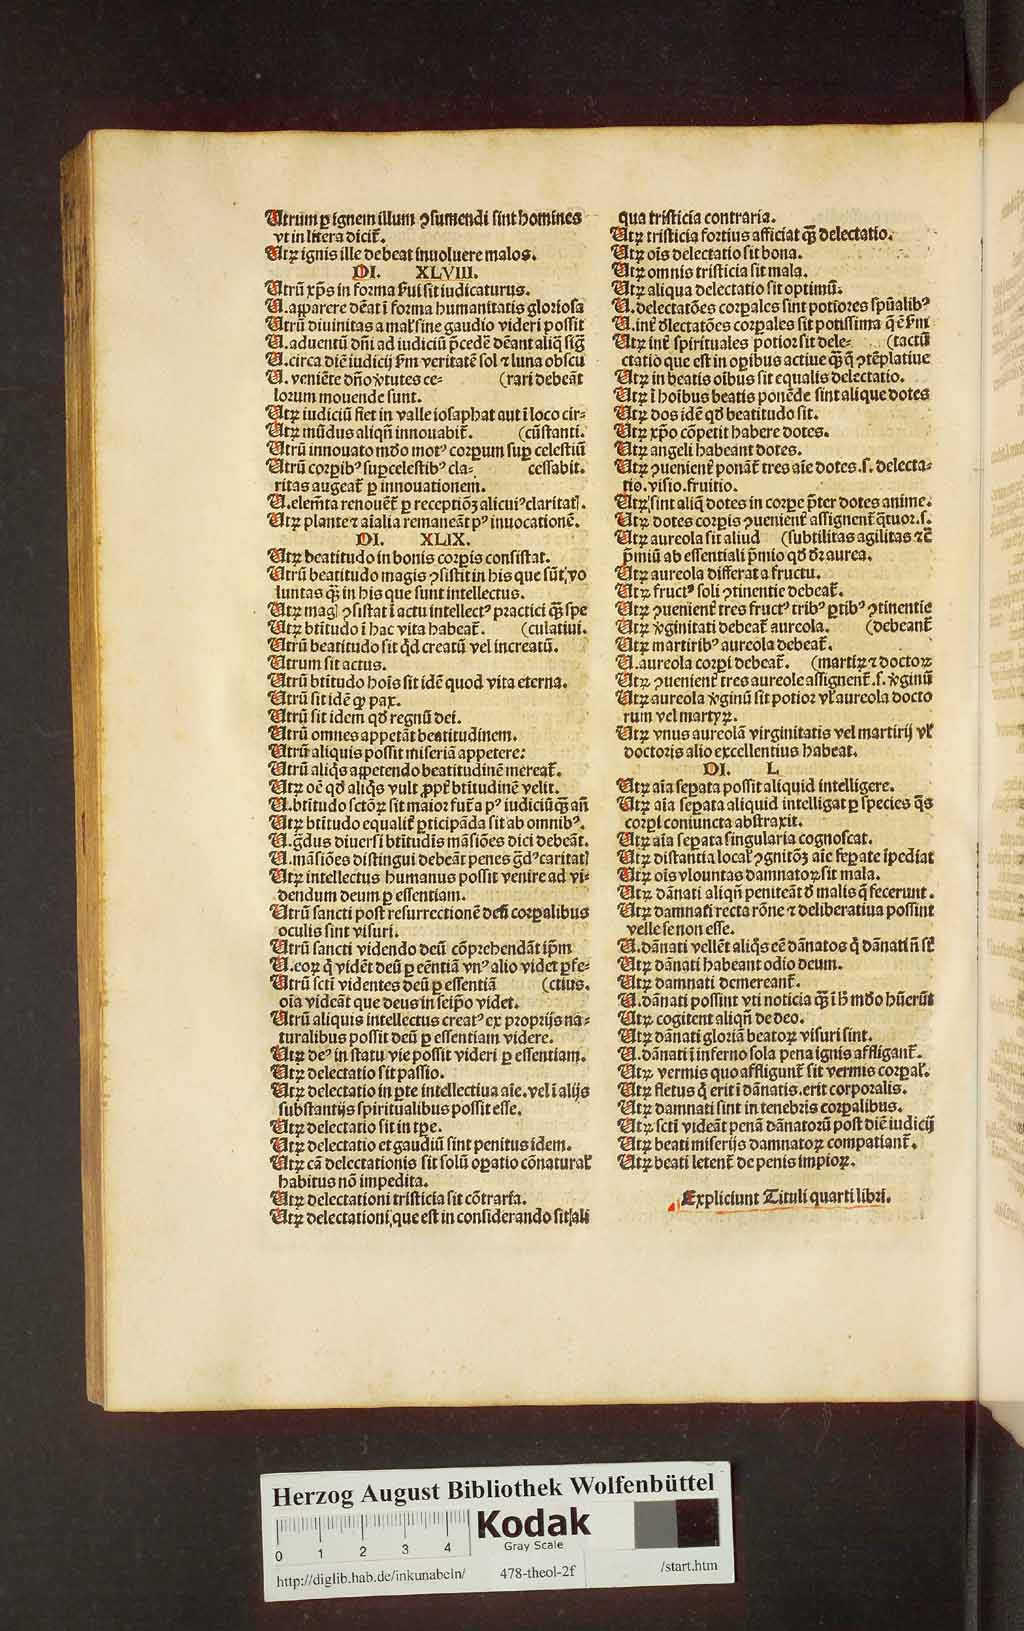 Utrum ꝑ ignem illum ꝯsumendi sint homines
vt in littera dicit̃.
Utꝝ ignis ille debeat inuoluere malos.
DI. XLVIII.
Utrũ xp̃s in forma ẜui sit iudicaturus.
U. apparere deat̃ ĩ forma humanitatis gloriosa
Utrũ diuinitas a mal̃ sine gaudio videri possit
U. aduentũ dñi ad iudiciũ p̃cedẽ deãnt aliq̃ sig̃
U. circa diẽ iudicij ẜm veritatẽ sol ⁊ luna obscu
U. veniẽte dño v̾tutes ce- (rari debeãt
lorum mouende sunt.
Utꝝ iudiciũ fiet in valle iosaphat aut ĩ loco cir-
Utꝝ mũdus aliqñ innouabit̃. (cũstanti.
Utrũ innouato mõo motꝰ corꝑum suꝑ celestiũ
Utrũ corꝑibꝰ suꝑcelestibꝰ cla- cessabit.
ritas augeat̃ ꝑ innouationem.
U. elem̃ta renouẽt̃ ꝑ receptiõꝫ alicuiꝰ claritat̃.
Utꝝ plante ⁊ aĩalia remaneãt pꝰ inuocationẽ.
DI. XLIX.
Utꝝ beatitudo in bonis corꝑis consistat.
Utrũ beatitudo magis ꝯsistit in his que sũt vo
luntas qꝫ in his que sunt intellectus.
Utꝝ mag̃ ꝯsistat ĩ actu intellectꝰ practici qꝫ spe
Utꝝ btĩtudo ĩ hac vita habeat̃. (culatiui.
Utrũ beatitudo sit q̃d creatũ vel increatũ.
Utrum sit actus.
Utrũ btĩtudo hoĩs sit idẽ quod vita eterna.
Utrũ sit idẽ qꝫ pax.
Utrũ sit idem qd̃ regnũ dei.
Utrũ omnes appetãt beatitudinem.
Utrũ aliquis possit miseriã appetere:
Utrũ aliq̃s appetendo beatitudinẽ mereat̃.
Utꝝ oẽ qd̃ aliq̃s vult ꝓpt̃ btĩtudinẽ velit.
U. btĩtudo sctõꝝ sit maior fut̃a pꝰ iudiciũ qꝫ añ
Utꝝ btĩtudo equalit̃ ꝑticipãda sit ab omnibꝰ.
U. g̃dus diuersi btĩtudis mãsiões dici debeãt.
U. mãsiões distingui debeãt penes g̃dꝰ caritat̃
Utꝝ intellectus humanus possit venire ad vi-
dendum deum ꝑ essentiam.
Utrũ sancti post resurrectionẽ deũ corꝑalibus
oculis sint visuri.
Utrũ sancti videndo deũ cõp̃rehendãt ip̃m
U. eoꝝ q̃ vidẽt deũ ꝑ eẽntiã vnꝰ alio videt ꝑfe-
Utrũ scti videntes deũ ꝑ essentiã (ctius.
oĩa videãt que deus in seip̃o videt.
Utrũ aliquis intellectus creatꝰ ex proprijs na-
turalibus possit deũ ꝑ essentiam videre.
Utꝝ deꝰ in statu vie possit videri ꝑ essentiam.
Utꝝ delectatio sit passio.
Utꝝ delectatio in ꝑte intellectiua aĩe. vel ĩ alijs
substantijs spiritualibus possit esse.
Utꝝ delectatio sit in tp̃e.
Utꝝ delectatio et gaudiũ sint penitus idem.
Utꝝ cã delectationis sit solũ oꝑatio cõnatural̃
habitus nõ impedita.
Utꝝ delectationi tristicia sit cõtraria.
Utꝝ delectationi, que est in considerando sit ali
qua tristicia contraria.
Utꝝ tristicia fortius afficiat qꝫ delectatio.
Utꝝ oĩs delectatio sit bona.
Utꝝ omnis tristicia sit mala.
Utꝝ aliqua delectatio sit optimũ.
U. delectatões corꝑales sint potiores spũalibꝰ
U. int̃ dlectatões corꝑales sit potissima q̃ ẽ ẜm
Utꝝ int̃ spirituales potior sit dele- (tactũ
ctatio que est in oꝑibus actiue qꝫ q̃ ꝯtẽplatiue
Utꝝ in beatis oĩbus sit equalis delectatio.
Utꝝ ĩ hoĩbus beatis ponẽde sint alique dotes
Utꝝ dos idẽ qd̃ beatitudo sit.
Utꝝ xp̃o cõpetit habere dotes.
Utꝝ angeli habeant dotes.
Utꝝ ꝯuenient̃ ponãt̃ tres aĩe dotes .s. delecta-
tio. visio. fruitio.
Utꝝ sint aliq̃ dotes in corꝑe p̃ter dotes anime.
Utꝝ dotes corꝑis ꝯuenient̃ assignent̃ q̃tuor .s.
Utꝝ aureola sit aliud (subtilitas agilitas ⁊c̃
p̃miũ ab essentiali p̃mio qd̃ dr̃ aurea.
Utꝝ aureola differat a fructu.
Utꝝ fructꝰ soli ꝯtinentie debeat̃.
Utꝝ ꝯuenient̃ tres fructꝰ tribꝰ ꝑtibꝰ ꝯtinentie
Utꝝ v̾ginitati debeat̃ aureola. (debeant̃
Utꝝ martiribꝰ aureola debeat̃.
U. aureola corꝑi debeat̃. (martiꝝ ⁊ doctoꝝ
Utꝝ ꝯuenient̃ tres aureole assignent̃ .s. v̾ginũ
Utꝝ aureola v̾ginũ sit potior vl̃ aureola docto
rum vel martyꝝ.
Utꝝ vnus aureolã virginitatis vel martirij vl̃
doctoris alio excellentius habeat.
DI. L
Utꝝ aĩa seꝑata possit aliquid intelligere.
Utꝝ aĩa seꝑata aliquid intelligat ꝑ species q̃s
corꝑi coniuncta abstraxit.
Utꝝ aĩa seꝑata singularia cognoscat.
Utꝝ distantia local̃ ꝯgnitõꝫ aĩe seꝑate ĩpediat
Utꝝ oĩs vlountas damnatoꝝ sit mala.
Utꝝ dãnati aliqñ peniteãt d̃ malis q̃ fecerunt.
Utꝝ damnati recta rõne ⁊ deliberatiua possint
velle se non esse.
U. dãnati vellẽt aliq̃s eẽ dãnatos q̃ dãnati ñ st̃
Utꝝ dãnati habeant odio deum.
Utꝝ damnati demereant̃.
U. dãnati possint vti noticia qꝫ ĩ h̃ mõo hũerũt
Utꝝ cogitent aliqñ de deo.
Utꝝ dãnati gloriã beatoꝝ visuri sint.
U. dãnati ĩ inferno sola pena ignis affligant̃.
Utꝝ vermis quo affligunt̃ sit vermis corꝑal̃.
Utꝝ fletus q̃ erit ĩ dãnatis. erit corporalis.
Utꝝ damnati sint in tenebris corꝑalibus.
Utꝝ scti videãt penã dãnatorũ post diẽ iudicij
Utꝝ beati miserijs damnatoꝝ compatiant̃.
Utꝝ beati letent̃ de penis impioꝝ.
Expliciunt Tituli quarti libri.
Herzog August Bibliothek Wolfenbüttel
Kodak
Gray Scale
0 1 2 3 4
http://diglib.hab.de/inkunabeln/ 478-theol-2f /start.htm